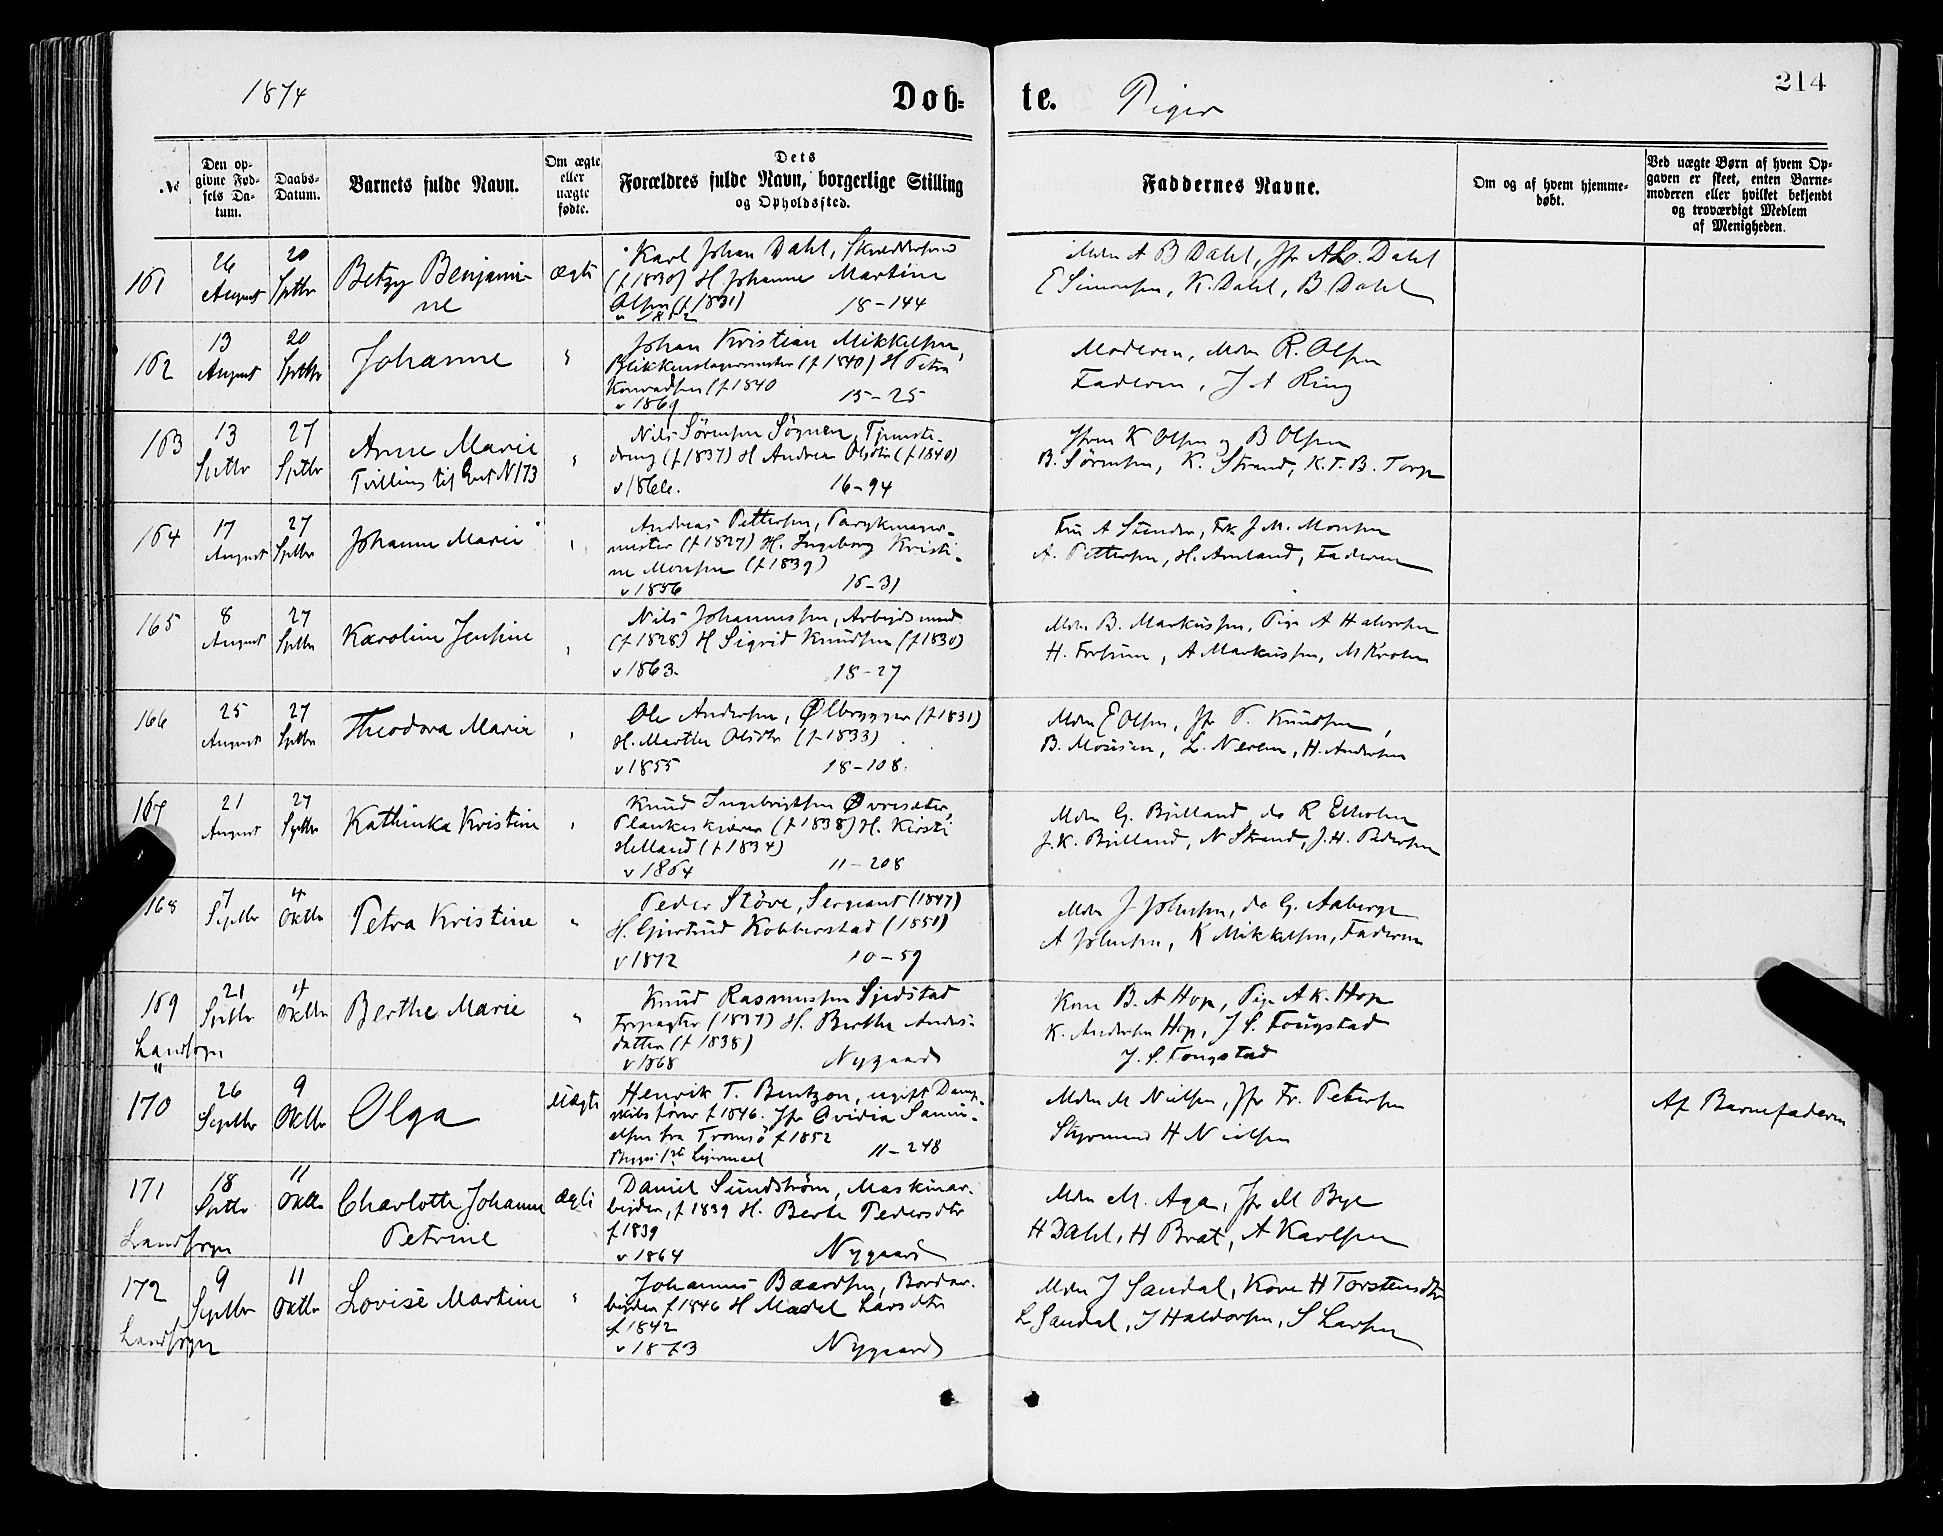 1874
Døb=
te.
Piger
214
№
Den op-
givne Fød-
sels Da-
tum.
Daabs-
Datum.
Barnets fulde Navn.
Om ægte
eller
uægte
fødte.
Dets
Forældres fulde Navn, borgerlige Stilling
og Opholdssted.
Faddernes Navne.
Om og af hvem hjemme-
døbt.
Ved uægte Børn af hvem Op-
gaven er skeet, enten Barne-
moderen eller hvilket bekjendt
og troværdigt Medlem
af Menigheden.
161
26
August
20
Sptbr
Betzy Benjami-
ne
Ægte
Karl Johan Dahl,
(f 1830) H Johanne Martine
Olsen (f 1831)
18-144
Mdm A B Dahl, Jfr Dahl
E Simonsen, K. Dahl, B Dahl
162
13
August
20
Sptbr
Johanne
"
Johan Kristian Mikkelsen,
Blikkenslagermester (f 1840) H Petra
Konradsen (f 1840
v 1869
15-25
Moderen, Mdm R. Olsen
Faderen, J A Ring
163
13
Sptbr
27
Sptbr
Anne Marie
Tvilling til Gut N 173
"
Nils Sørensen Søgnen, Tjeneste-
dreng (f 1837) H Andrea Olsdtr (f 1840)
v 1866.
16-94
K Olsen og B Olsen
B. Sørensen, K. Strand, K. T. B. Torp
164
17
August
27
Sptbr
Johanne Marie
"
Andreas Pettersen, Parykmager-
mester (f 1827) H. Ingeborg Kristi-
ne Monsen (f 1839)
v 1856
15-31
Fru A Sunder, Frk J. M. Monsen
A. Pettersen, H. Amland, Faderen
165
8
August
27
Sptbr
Karoline Jensine
"
Nils Johannessen, Arbeidsmand
(f 1828) H Sigrid Knudsen (f 1830)
v 1863.
18-27
Mdm B. Markussen, Pige A Halvorsen
H. , A Markussen, M Krohn
166
25
August
27
Sptbr
Theodora Marie
"
Ole Andersen, Ølbrygger (f 1831)
H. Marthe Olsdtr (f 1833)
v 1855
18-108.
Mdm E Olsen, Jfr T. Knudsen,
B. Monsen, L. , H. Andersen
167
21
August
27
Sptbr
Kathinka Kristine
"
Knud Ingebrigtsen Øvresæter,
Plankeskjærer (f 1838) H. Kirsti
Helland (f 1834)
v 1864
11-208
Mdm G. Bjelland, do R Elholm
J. K. Bjelland, N Strand, J. H. Pedersen
168
7
Septbr
4
Oktbr
Petra Kristine
"
Peder Støve, Sergeant (1847)
H. Gjertrud Kobberstad (1851)
v 1872
10-59
Mdm J Johnsen, do G. Aaberge
A Johnsen, K Mikkelsen, Faderen
169
Landsogn
21
Sptbr
4
Oktbr
Berthe Marie
"
Knud Rasmussen Sjedstad
Forpagter (1837) H. Berthe Anders-
datter (f 1838)
v 1868
Nygaard
Kone B. A Hop, Pige A K. Hop
K. Andersen Hop, J S. Fougstad
J. S. Fougstad
"
170
26
Septbr
9
Oktbr
Olga
Uægte
Henrik T. Bentzon, ugift Damp-
skibsfører f 1846. Jfr Ovidia Samu-
elsen fra Tromsø f 1852
Begges 1ste Leiermaal
11-248
Mdm M Nielsen, Jfr Fr. Petersen
Styrmand H Nielsen
Af Barnefaderen
171
Landsogn
18
Sptbr
11
Oktbr
Charlotte Johanne
Petrine
Ægte
Daniel Sundstrøm, Maskinar-
beider, f 1839 H. Berte Pedersdtr
f 1839
v 1864
Nygaard
Mdm M. Aga, Jfr M Bye
H Dahl, H Brat, A Karlsen
172
Landsogn
9
Septbr
11
Oktbr
Lovise Martine
"
Johannes Baardsen, Bordar-
beider f 1846 H Madel Larsdtr
f 1842
v 1873
Nygaard
Mdm J Sandal, Kone H Torstensdtr
L Sandal, J Haldorsen, S Larsen